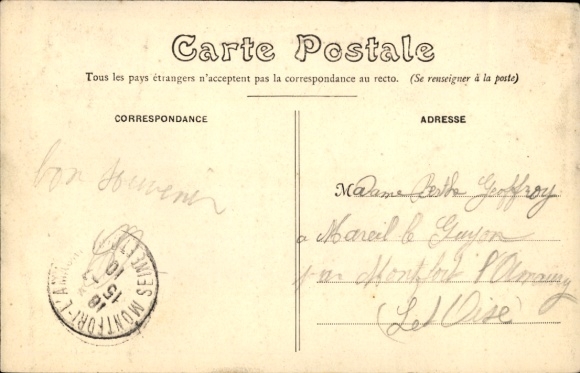 Carte Postale
Tous les pays étrangers n'acceptent pas la correspondance au recto. (Se renseigner à la poste)
CORRESPONDANCE
ADRESSE
bon souvenir
Madame Berthe Geoffroy
a Mareil le Guyon
par Montfort l'Amaury
(Set Oise)
MONTFORT-L'AMAURY
SEINE-ET-